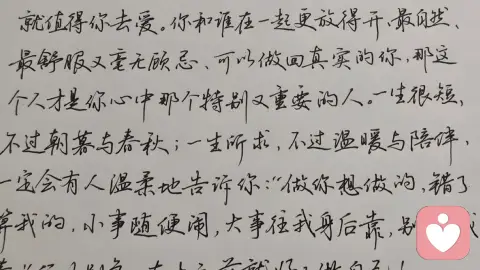 就值得你去爱。你和谁在一起更放得开、最自然、
最舒服又毫无顾忌、可以做回真实的你,那这
个人才是你心中那个特别又重要的人。一生很短,
不过朝暮与春秋;一生所求,不过温暖与陪伴,
一定会有人温柔地告诉你:“做你想做的,错了
算我的,小事随便闹,大事往我身后靠,别